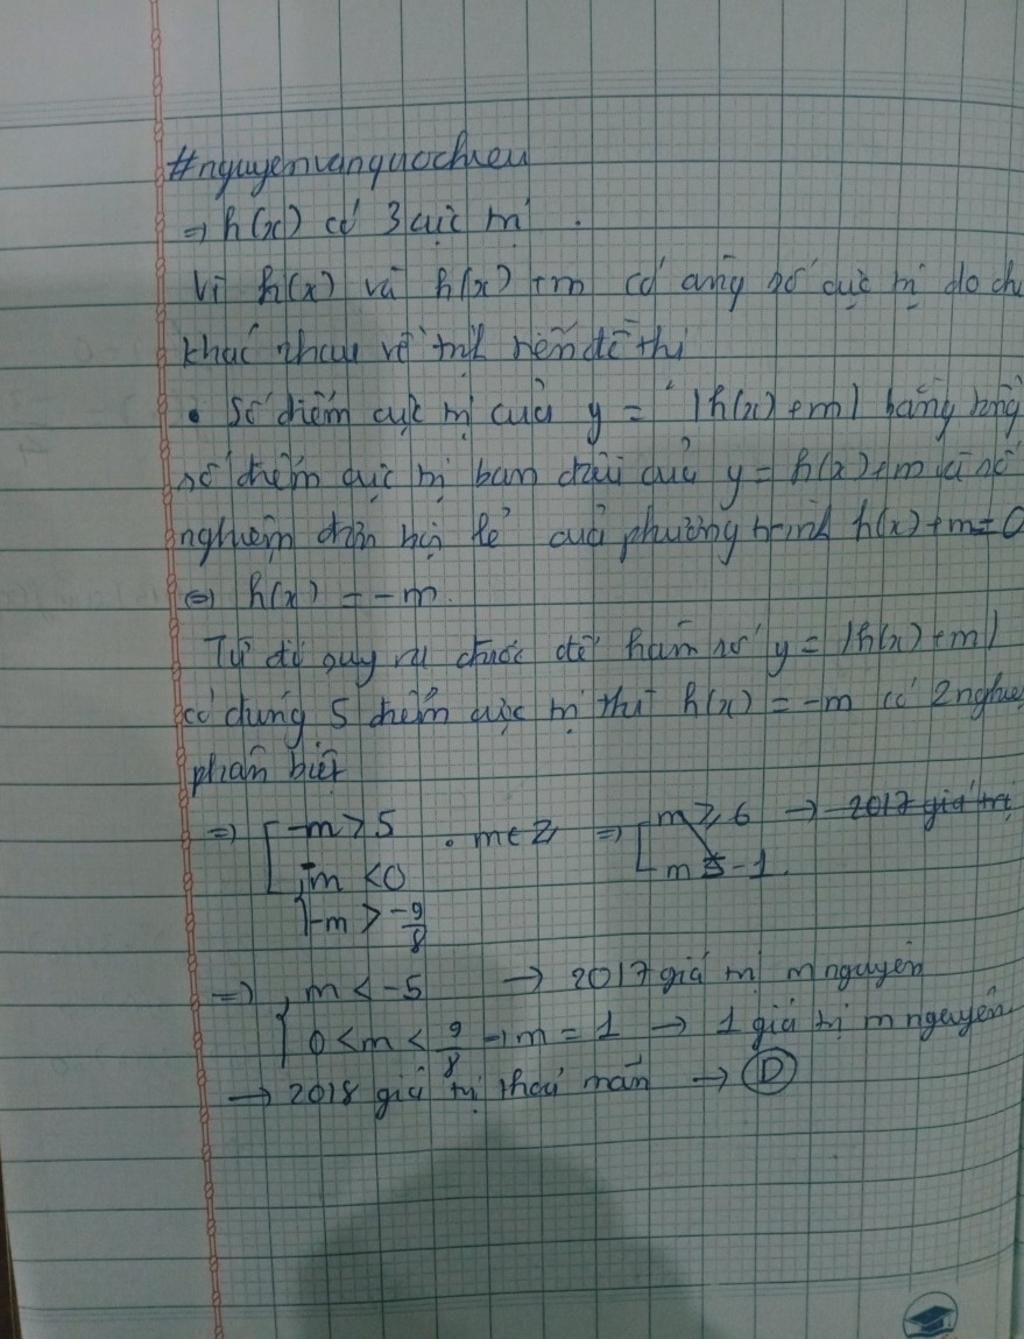 #nguyenvanquochieu
=> h(x) có 3 cực trị.
Vì h(x) và h(x) + m có cùng số cực trị do ch
khác nhau về trên đồ thị
• Số điểm cực trị của y = |h(x) + m| bằng tổng
số điểm cực trị ban đầu của y = h(x) + m và số
nghiệm đơn bội lẻ của phương trình h(x) + m = 0
<=> h(x) = -m.
Từ đó suy ra được để hàm số y = |h(x) + m|
có đúng 5 điểm cực trị thì h(x) = -m có 2 nghiệ
phân biệt
=> [ -m > 5 . m ∈ Z => [ m ≥ 6 → 2017 giá trị
{ -m < 0 m ≤ -1.
-m > -9/8
=> { m < -5 → 2017 giá trị m nguyên
0 < m < 9/8 → m = 1 → 1 giá trị m nguyên
→ 2018 giá trị thoả mãn → D